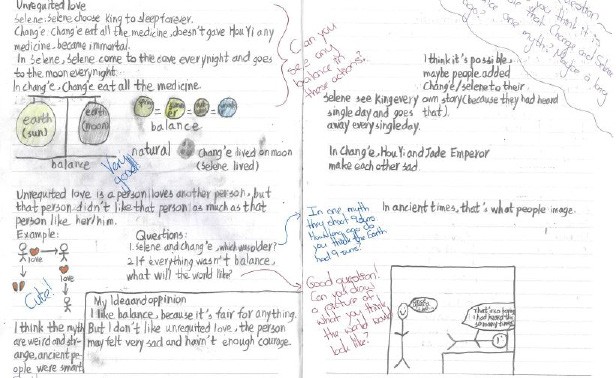 Unrequited love
Selene, Selene choose king to sleep forever.
Chang'e Chang'e eat all the medicine, doesn't gave Hou Yi any
medicine, became immortal.
In Selene, Selene come to the cave everynight and goes
to the moon everynight.
In chang'e, Chang'e eat all the medicine.
earth
(sun)
earth
(moon)
balance
balance
natural
Chang'e lived on moon
(Selene lived)
Very
good!
Unrequited love is a person loves another person, but
that person didn't like that person as much as that
person like her/him.
Example:
love
love
Cute!
Quertions:
1. Selene and chang'e, which was older?
2. If everything wasn't balance,
what will the world like?
My Idea and oppinion
I like balance, because it's fair for anything.
But I don't like unrequited love, the person
may felt very sad and hasn't enough courage.
I think the myth
are weird and str-
ange, ancient pe-
ople were smart
Can you
see any
balance in
these actions?
I think it's possible,
maybe people added
Chang'e/selene to their
own story (because they had heard
that).
Selene see king every
single day and goes
away every single day.
In Chang'e, Hou Yi and Jade Emperor
make each other sad.
In ancient times, that's what people image.
In one myth
they shot 9 suns
How long ago do
you think the Earth
had 9 suns?
Good question!
Can you draw
a picture of
what you think
the world would
look like?